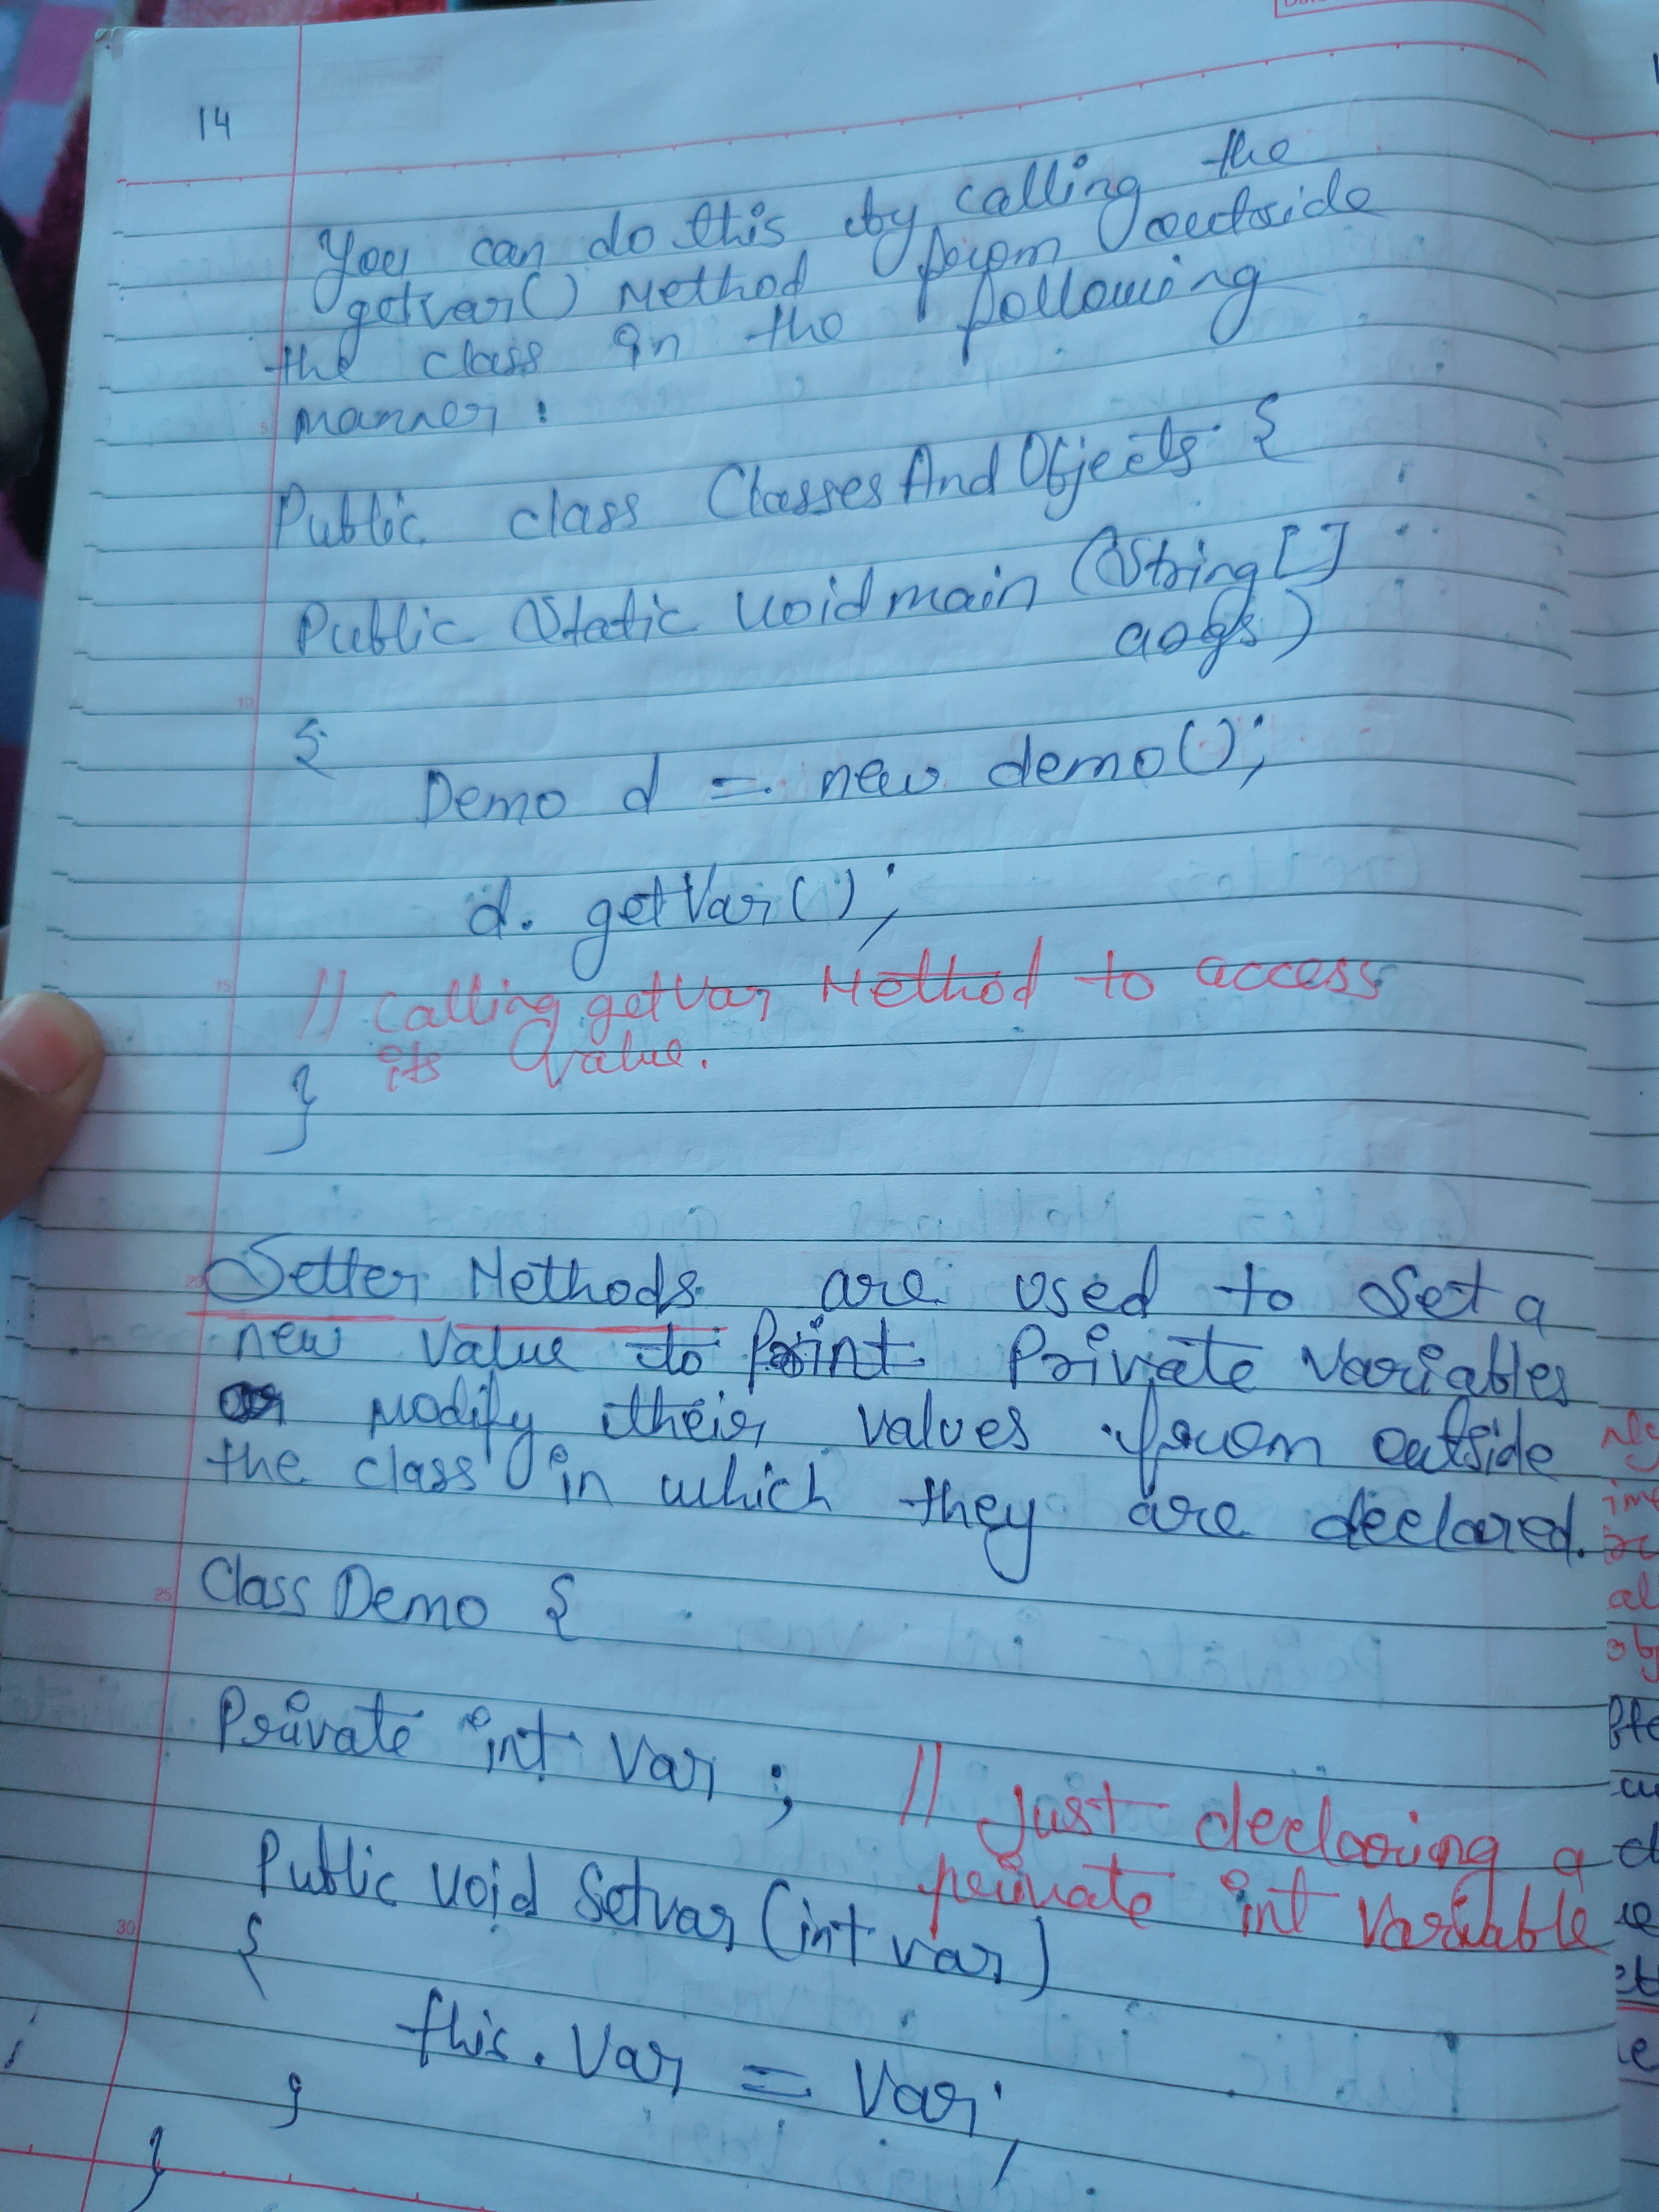 14
You can do this by calling the
getvar() Method from outside
the class in the following
manner:
Public class ClassesAndObjects {
Public Static void main (String []
args)
{
Demo d = new demo();
d. getVar();
// Calling getVar Method to access
its value.
}
Setter Methods are used to Set a
new value to Print Private Variables
or modify their values from outside
the class in which they are declared.
Class Demo {
Private int Var ; // Just declaring a
private int Variable
Public void Setvar (int var)
{
this. Var = Var;
}
}